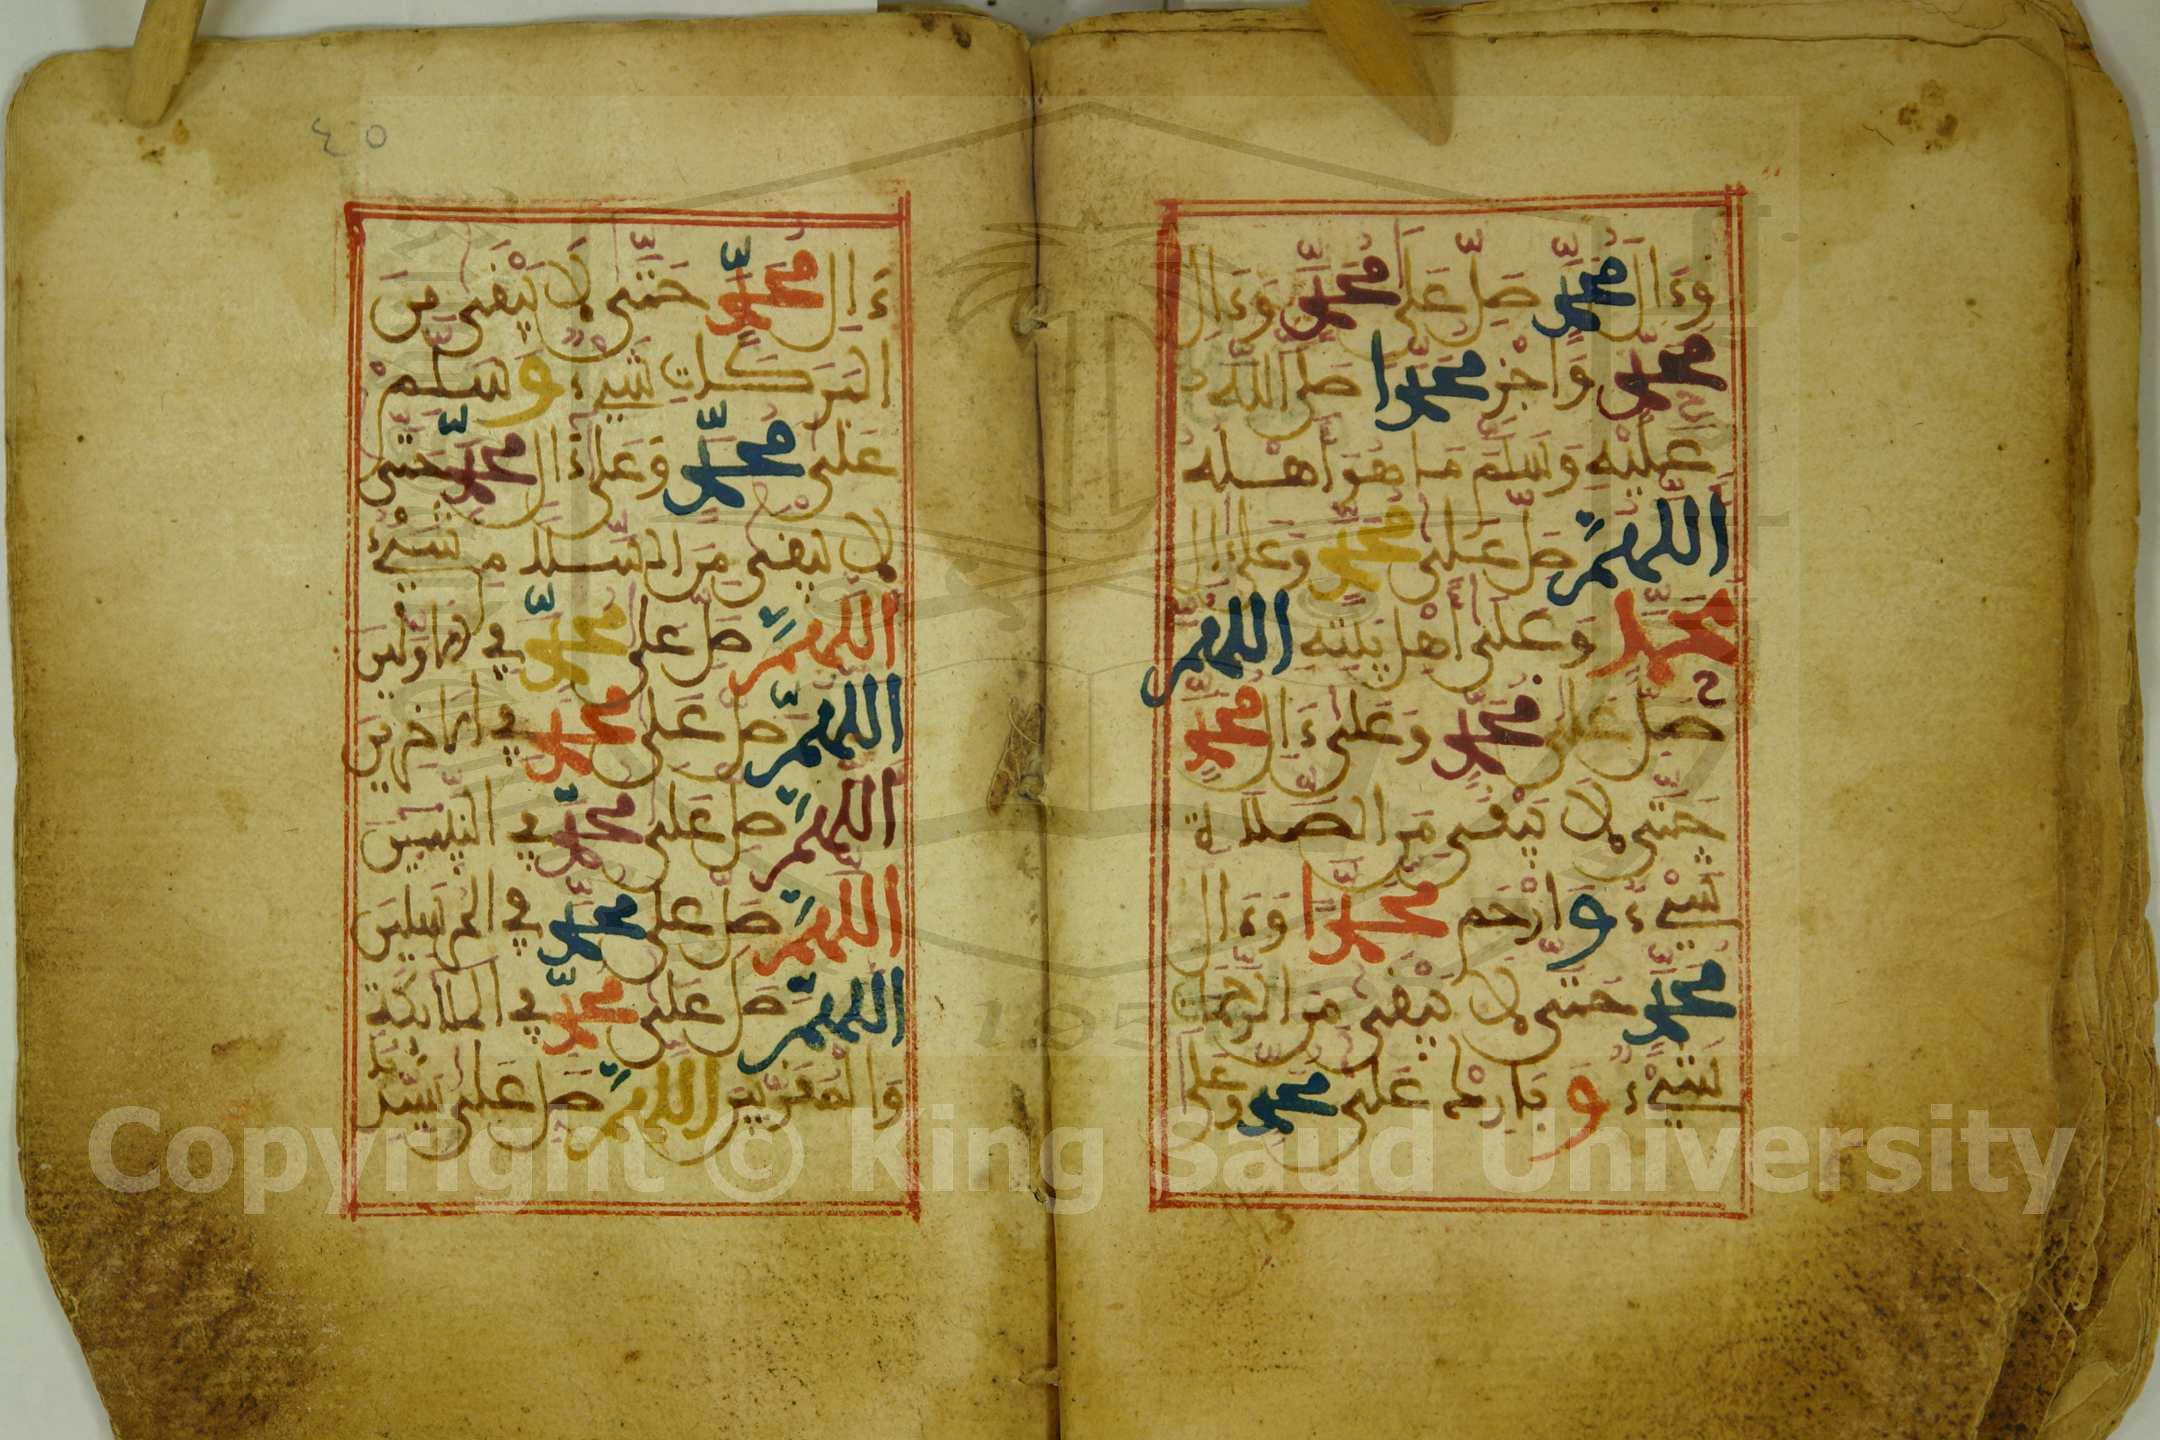 وَءَالِ مُحَمَّدٍ صَلِّ عَلَى مُحَمَّدٍ وَءَالِ
مُحَمَّدٍ وَاجْزِ مُحَمَّدًا صَلَّى اللَّهُ
عَلَيْهِ وَسَلَّمَ مَا هُوَ أَهْلُهُ
اللَّهُمَّ صَلِّ عَلَى مُحَمَّدٍ وَعَلَى ءَالِ
مُحَمَّدٍ وَعَلَى أَهْلِ بَيْتِهِ اللَّهُمَّ
صَلِّ عَلَى مُحَمَّدٍ وَعَلَى ءَالِ مُحَمَّدٍ
حَتَّى لَا يَبْقَى مِنَ الصَّلَاةِ
شَيْءٌ وَارْحَم مُحَمَّدًا وَءَالَ
مُحَمَّدٍ حَتَّى لَا يَبْقَى مِنَ الرَّحْمَةِ
شَيْءٌ وَبَارِكْ عَلَى مُحَمَّدٍ وَعَلَى
٤٥
ءَالِ مُحَمَّدٍ حَتَّى لَا يَبْقَى مِنَ
الْبَرَكَاتِ شَيْءٌ وَسَلِّمْ
عَلَى مُحَمَّدٍ وَعَلَى ءَالِ مُحَمَّدٍ حَتَّى
لَا يَبْقَى مِنَ السَّلَامِ شَيْءٌ
اللَّهُمَّ صَلِّ عَلَى مُحَمَّدٍ فِي الْأَوَّلِينَ
اللَّهُمَّ صَلِّ عَلَى مُحَمَّدٍ فِي الْأَخِرِينَ
اللَّهُمَّ صَلِّ عَلَى مُحَمَّدٍ فِي النَّبِيِّينَ
اللَّهُمَّ صَلِّ عَلَى مُحَمَّدٍ فِي الْمُرْسَلِينَ
اللَّهُمَّ صَلِّ عَلَى مُحَمَّدٍ فِي الْمَلَائِكَةِ
وَالْمُقَرَّبِينَ اللَّهُمَّ صَلِّ عَلَى سَيِّدِنَا
Copyright © King Saud University